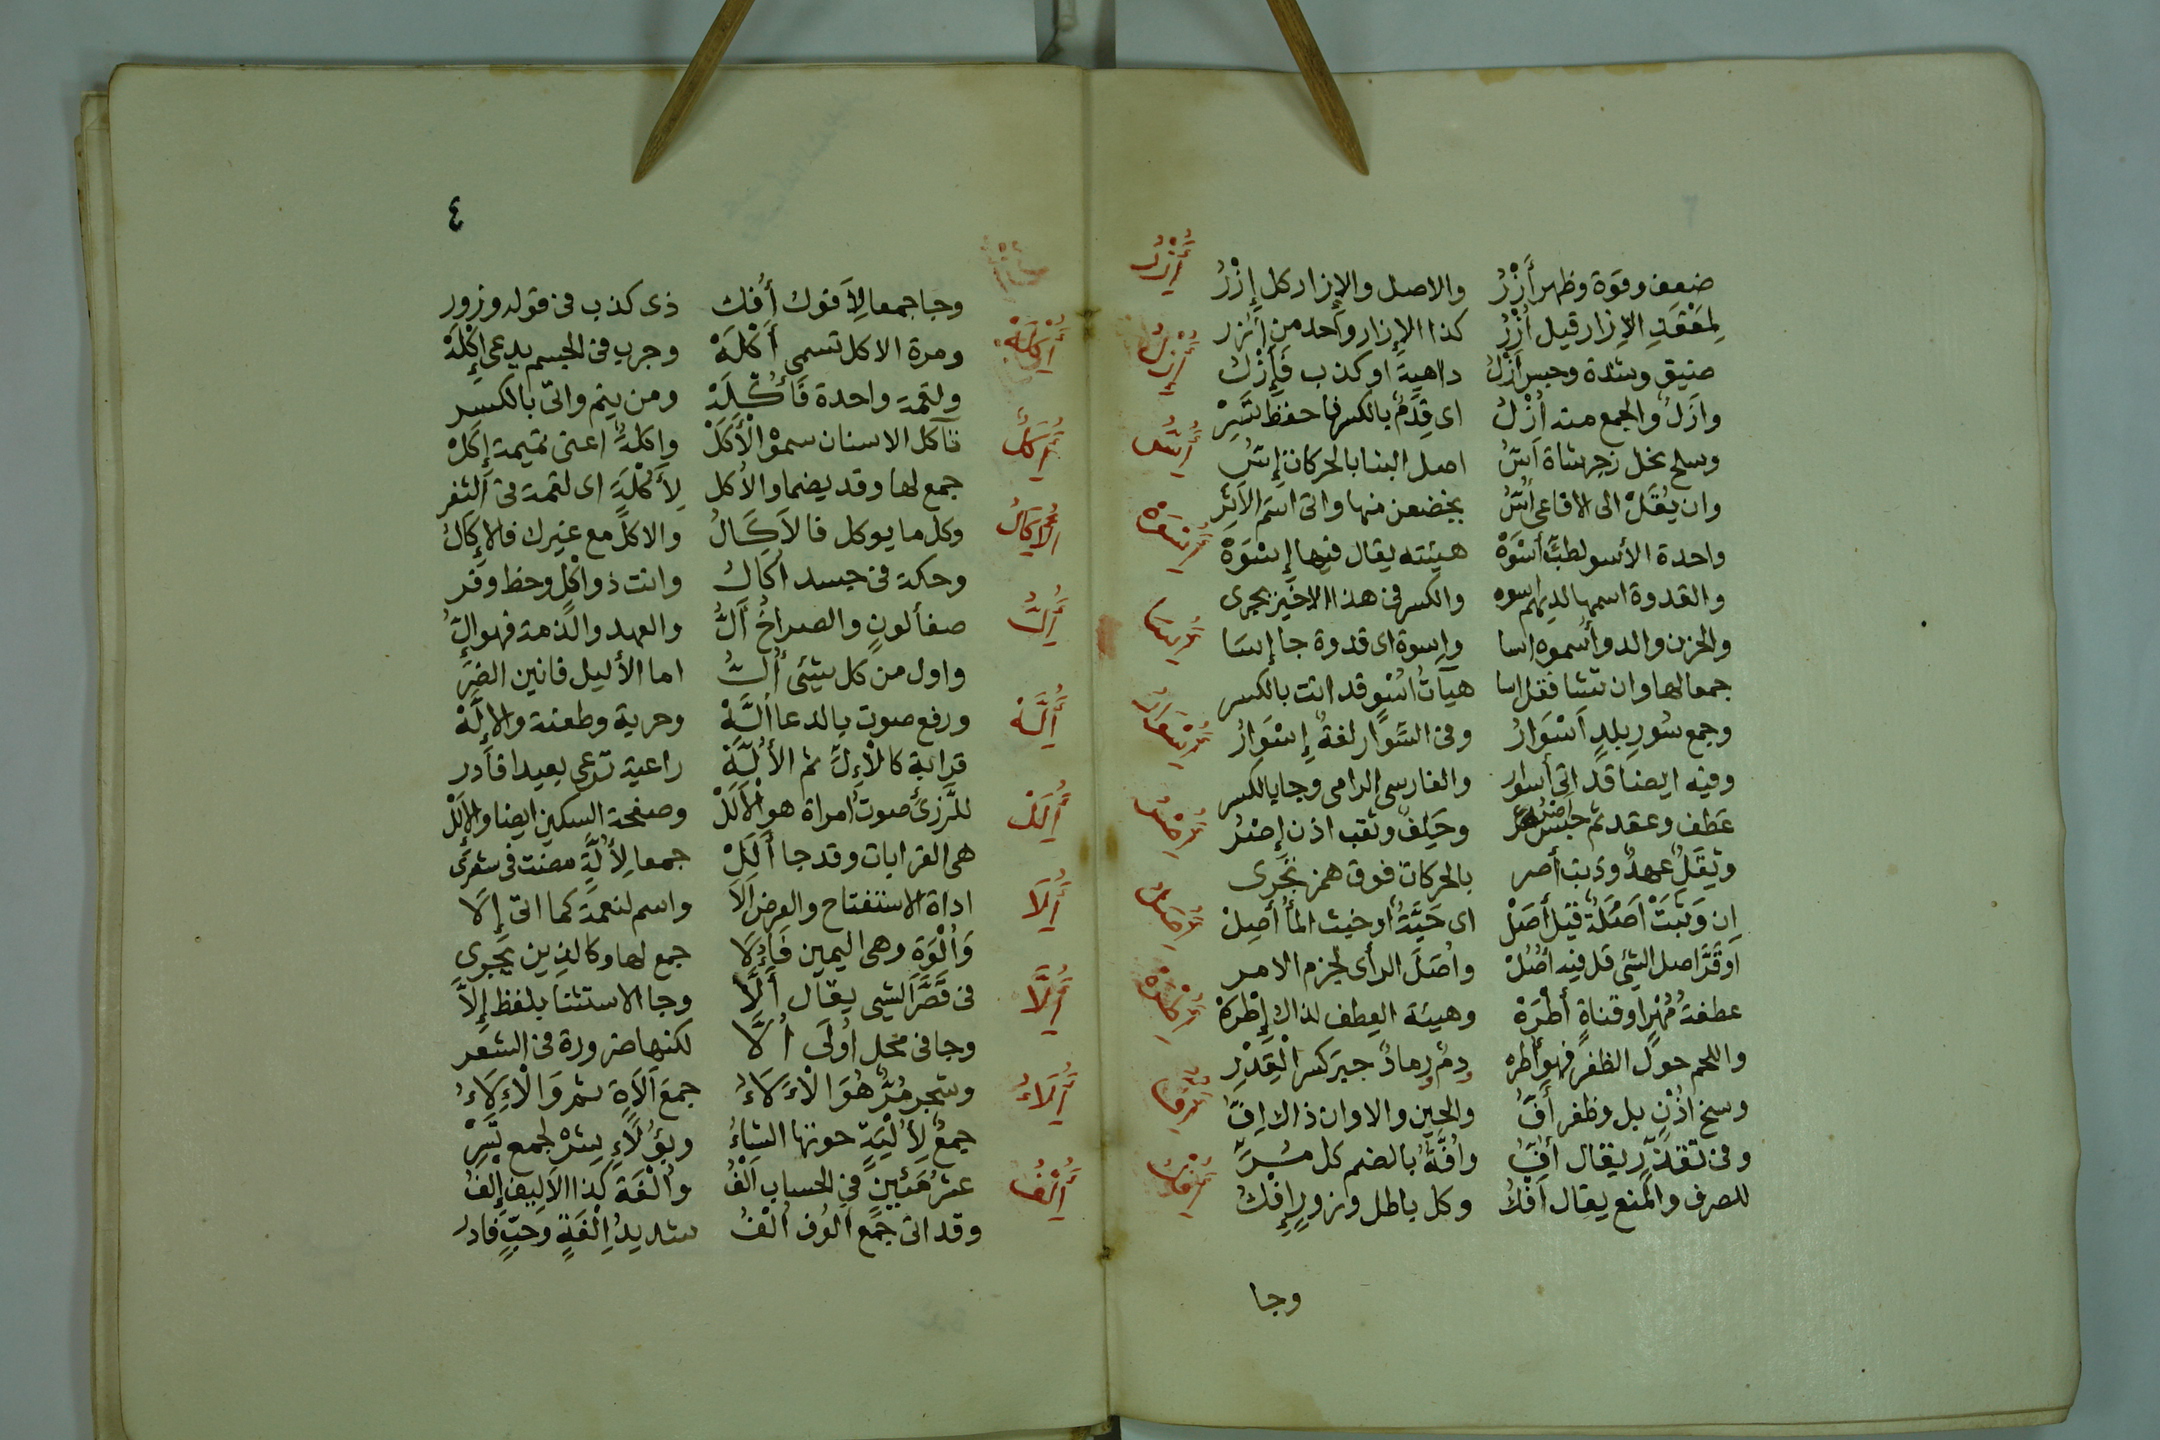 ضعف وقوة وظهر أَزْرُ والاصل والإزار كل إِزْرُ
لمَعْقَدِ الإزار قيل أُزْرُ كذا الإزار واحد من أُزر
ضيق وشدة وحبس أَزْلُ داهية او كذب فَإِزْلُ
وازَلٌ والجمع منه أُزْلُ اى قِدَمٌ بالكسر
وسلح نخل زجر شاة أَسُّ اصل البنا بالحركات إِسُّ
وان يُقَلْ الى الافاعى أُسُّ يخضعن منها واتى اسم الاثر
واحدة الأسو لطبٍّ أَسْوَهْ هيئته يقال فيها إِسْوَهْ
والقدوة اسمها لديهم اسوه والكسر فى هذا الاخير يجرى
والحزن والدوا سموه اسا وإسوة اى قدوة جا إسَا
جمعا لها وان تشا فقل اسا هيآت اُسْوٍ قد اتت بالكسر
وجمع سُورِ بلدٍ اَسْوَارُ وفى السِّوَار لغةٌ إِسْوَارُ
وفيه ايضا قد اتى أسوار والفارسى الرامى وجا بالكسر
عَطف وعقد ثم حبس اصر وحَلِفٌ وثقب اذن إصْرُ
وثِقَلٌ عهدٌ وذنب أصر بالحركات فوق همز تجرى
ان وَثبَتْ اَصَلَةٌ قيل أَصَلْ اى حَيَّةٌ او خبث المأ أَصِلْ
اوقَرَّ اصل الشئ قل فيه أَصُلْ وأصُلَ الرأى لجزم الامر
عطفة مُهْرٍ او قناةٍ أَطْرَهْ وهيئة العطف لذاك إِطْرَهْ
واللحم حول الظفر فهو أطره ودم رماد جبر كسر الْقِدْرِ
وسخ اُذْنٍ بل وظفر أَفُّ والحين والاوان ذاك اِفُّ
وفى تقذّر يقال أُفُّ وأُفَّةٌ بالضم كل
للصرف والمنع يقال أَفْكُ وكل باطل وزورٍ إِفْكُ
وجا
أزر
أزل
أس
أسوه
أسا
أسوار
أصر
أصل
أطره
أف
أفك
٤
وجا جمعا لِأَفوك أُفك ذى كذب فى قوله وزور
ومرة الاكل تسمى أَكْلَهْ وجرب فى الجسم يدعى إِكْلَهْ
ولقمة واحدة فَأُكْلَهْ ومن يضم واتى بالكسر
تآكل الاسنان سموْ الْأَكَلْ وإكلةٌ اعنى نميمة إِكَلْ
جمع لها وقد يضما والأكل لِأُكْلَةٍ اى لقمة فى الثغر
وكل ما يوكل فالأَكَالُ والاكل مع غيرك فالإِكَالُ
وحكة فى جسد أُكَالُ وانت ذو اكْلٍ وحظ وفر
صفأ لونٍ والصراخُ أَلُّ والعهد والذمة فهو إلُّ
واول من كل شيئ أُلُّ اما الأليل فانين الضر
ورفع صوت بالدعا أَلَّهْ وحربة وطعنة والإلَّهْ
قرابة كالْإِلّ ثم الأُلَّه راعية ترعى بعيدا فادر
صوت امراة هو الْأَلَلْ وصفحة السكين ايضا والإِلَلْ
هى القرابات وقد جا أُلَلْ جمعا لِأُلَّةٍ مضت فى شعرى
اداة الاستفتاح والعرض أَلَا واسم لنعمة كما اتى إِلَا
وَأُلْوَةٍ وهى اليمين فَأُلَا جمع لها وكالذين يجرى
فى قَصَّرَ الشى يقال أَلَّا وجا الاستثنا بلفظ إِلَّا
وجا فى محل اُولَى أُلَّا لكنها ضرورة فى الشعر
وشجر مُرٌّ هُوَ الْأَلَاءُ جمع اَلَاةٍ ثم وَالْإِلَاءُ
جمعٌ لِأَلْيَةٍ حوتها الشاءُ وبِؤُلَاءِ يشرْ لجمع
عشرُ مئين فى الحساب أَلْفُ وأُلْفَة كذا الاليف إِلْفُ
وقد اتى جمع اَلُوف أُلْفُ شديدُ اِلْفَةٍ وحبٍّ فادر
أكله
أكل
الأكال
أل
أله
ألل
ألا
ألّا
ألاء
ألف